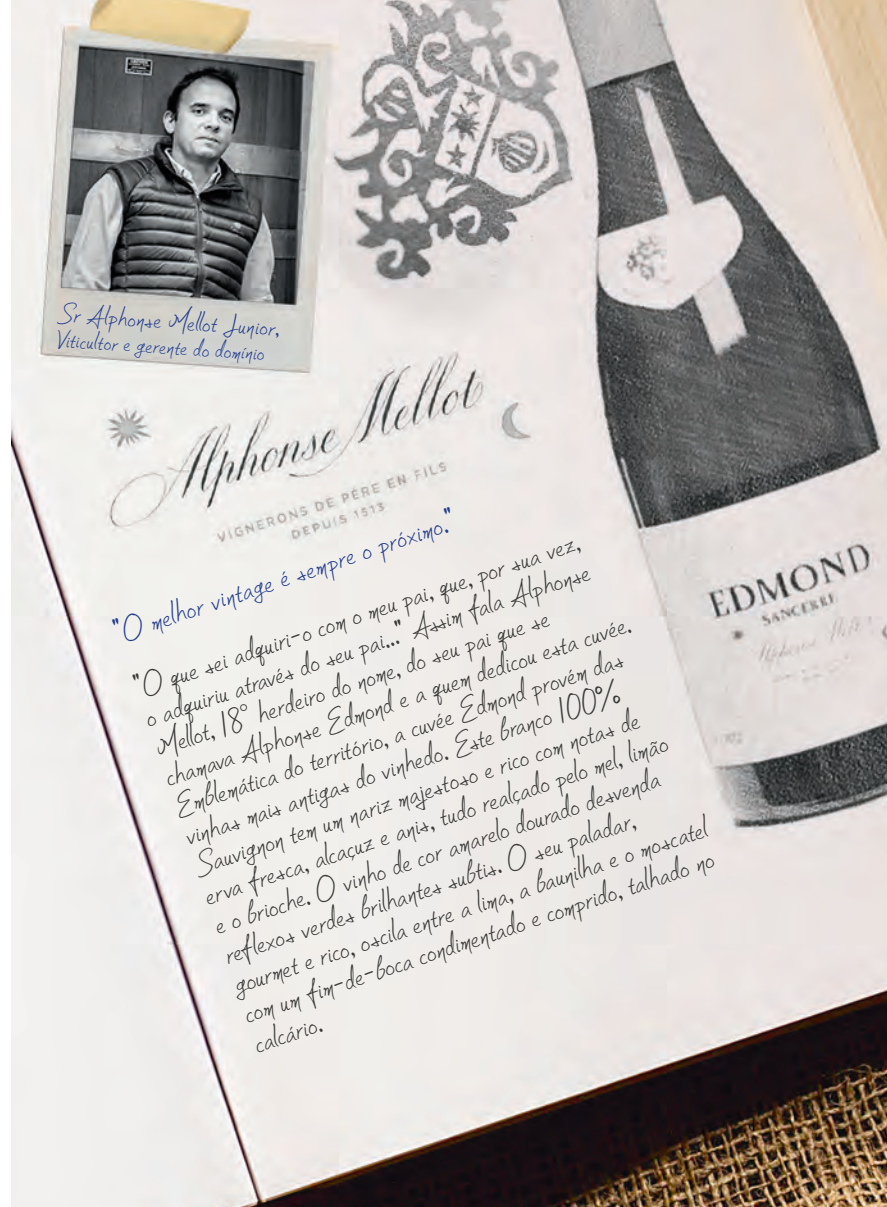 Sr Alphonse Mellot Junior,
Viticultor e gerente do domínio
Alphonse Mellot
VIGNERONS DE PÈRE EN FILS
DEPUIS 1513
"O melhor vintage é sempre o próximo."
"O que sei adquiri-o com o meu pai, que, por sua vez,
o adquiriu através do seu pai..." Assim fala Alphonse
Mellot, 18º herdeiro do nome, do seu pai que se
chamava Alphonse Edmond e a quem dedicou esta cuvée.
Emblemática do território, a cuvée Edmond provém das
vinhas mais antigas do vinhedo. Este branco 100%
Sauvignon tem um nariz majestoso e rico com notas de
erva fresca, alcaçuz e anis, tudo realçado pelo mel, limão
e o brioche. O vinho de cor amarelo dourado desvenda
reflexos verdes brilhantes subtis. O seu paladar,
gourmet e rico, oscila entre a lima, a baunilha e o moscatel
com um fim-de-boca condimentado e comprido, talhado no
calcário.
EDMOND
SANCERRE
Alphonse Mellot